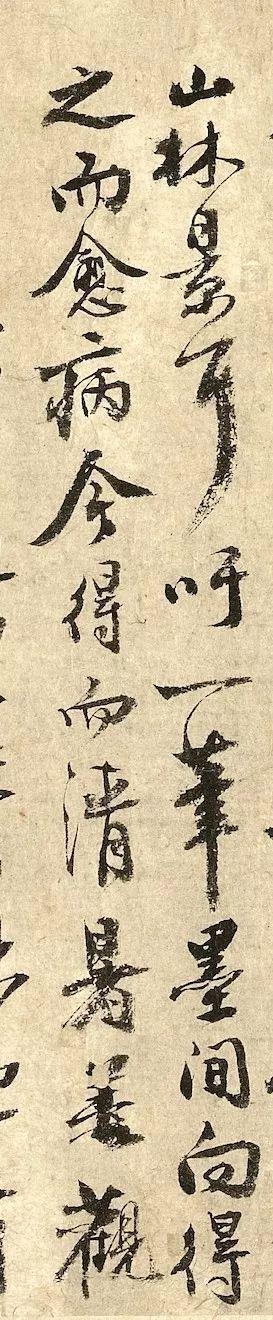 山林景耳吁一筆墨間向得
之而愈病今得而清暑善觀